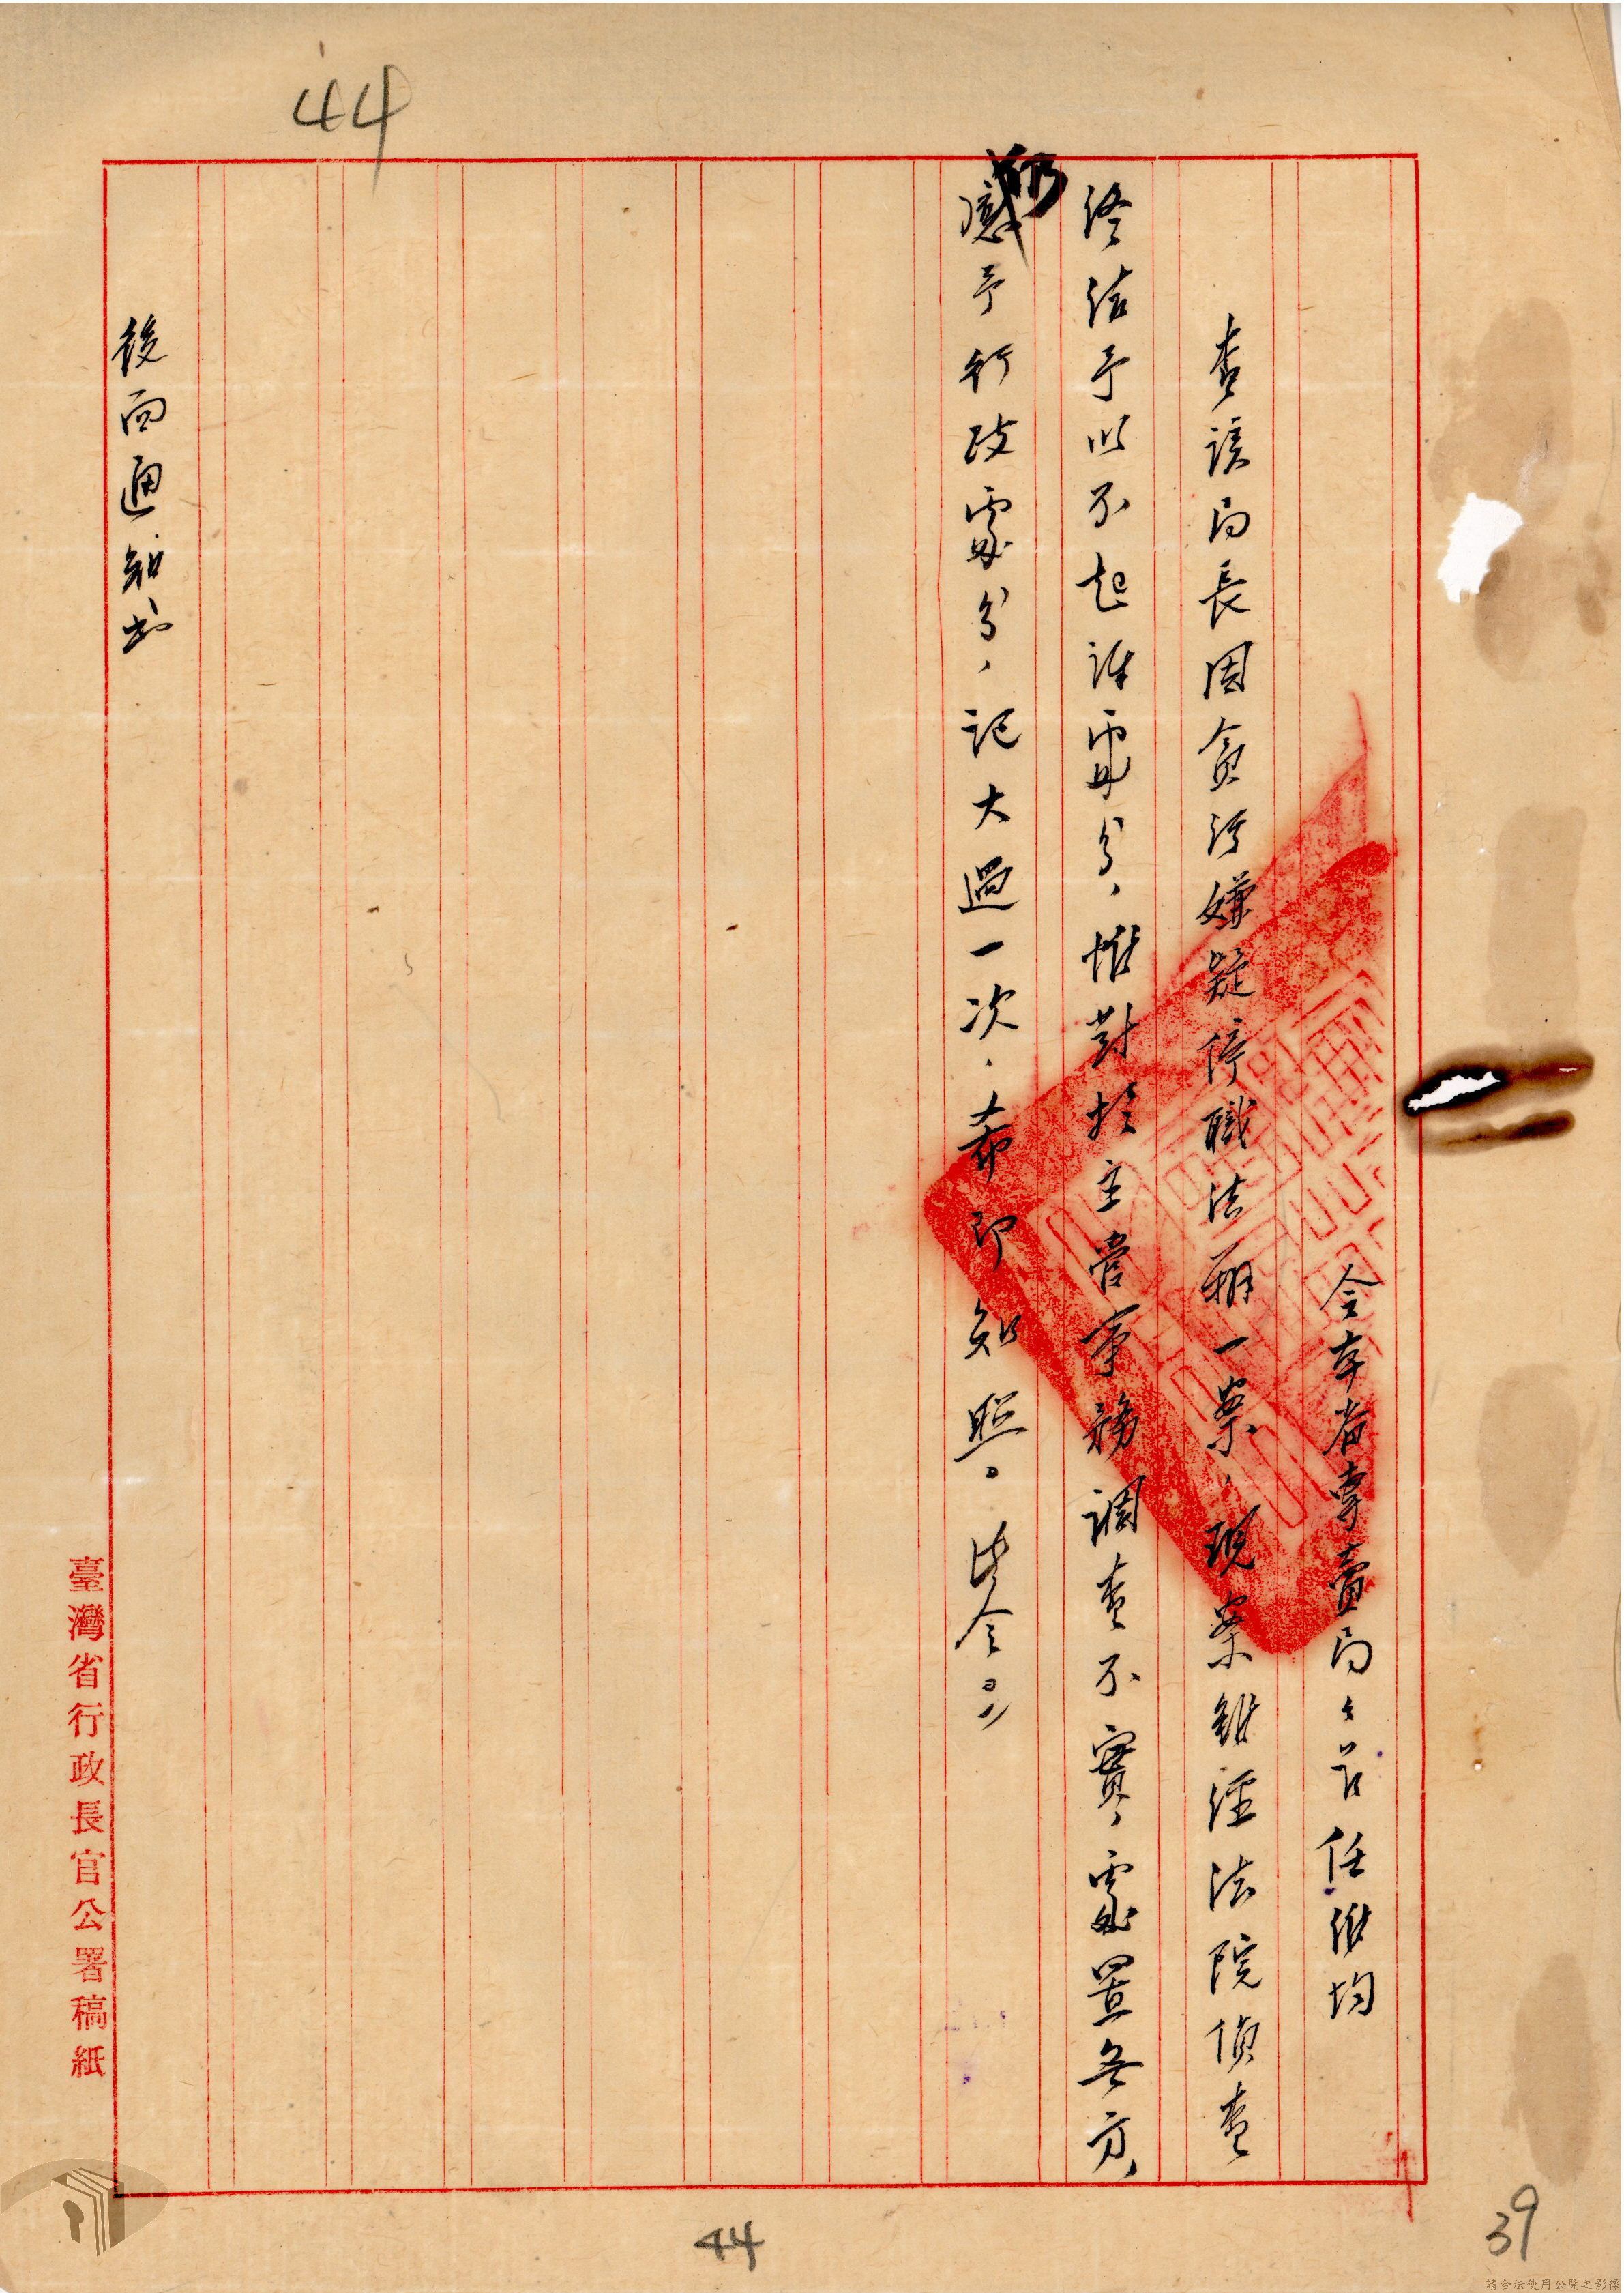 44
令本省專賣局々長任維均
查該局長因貪污嫌疑停職法辦一案，現案雖經法院偵查
終結予以不起訴處分，惟對於主管事務調查不實，處置無方，
仍應予行政處分，記大過一次．希即知照。此令
後面通知书
臺灣省行政長官公署稿紙
44
39
請合法使用公開之影像